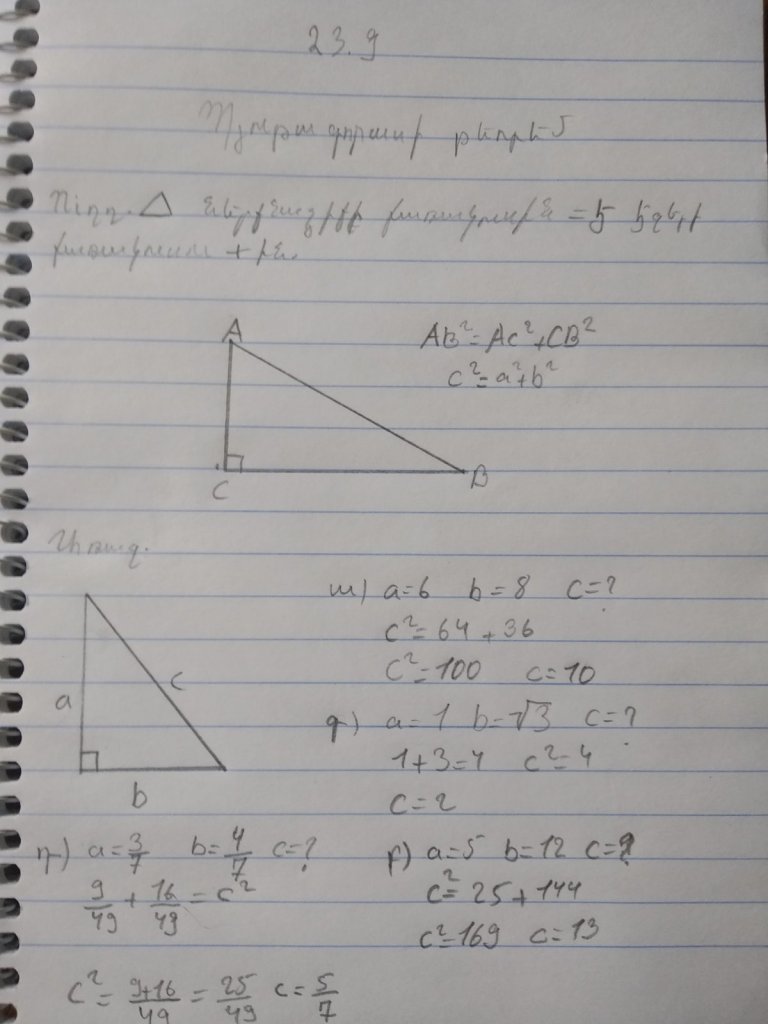 23.9
Պյութագորասի թեորեմ
Ուղղ. △ ներքնաձիգի քառակուսին = է էջերի
քառակուսու + ին.
A
AB²=AC²+CB²
c²=a²+b²
C
B
a
c
b
ա) a=6 b=8 c=?
c²=64+36
c²=100 c=10
գ) a=1 b=√3 c=?
1+3=4 c²=4
c=2
դ) a=3/7 b=4/7 c=?
9/49 + 16/49 = c²
c²= 9+16/49 = 25/49 c=5/7
բ) a=5 b=12 c=?
c²=25+144
c²=169 c=13